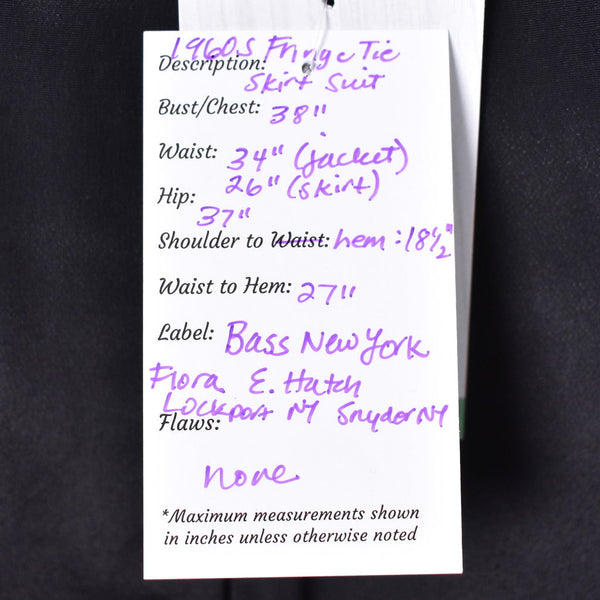 1960s Fringe Tie
Description:
Skirt Suit
Bust/Chest: 38"
Waist: 34" (jacket)
26" (skirt)
Hip:
37"
Shoulder to Waist: hem: 18½"
Waist to Hem: 27"
Label: Bass New York
Flora E. Hatch
Lockport NY Snyder NY
Flaws:
none
*Maximum measurements shown
in inches unless otherwise noted